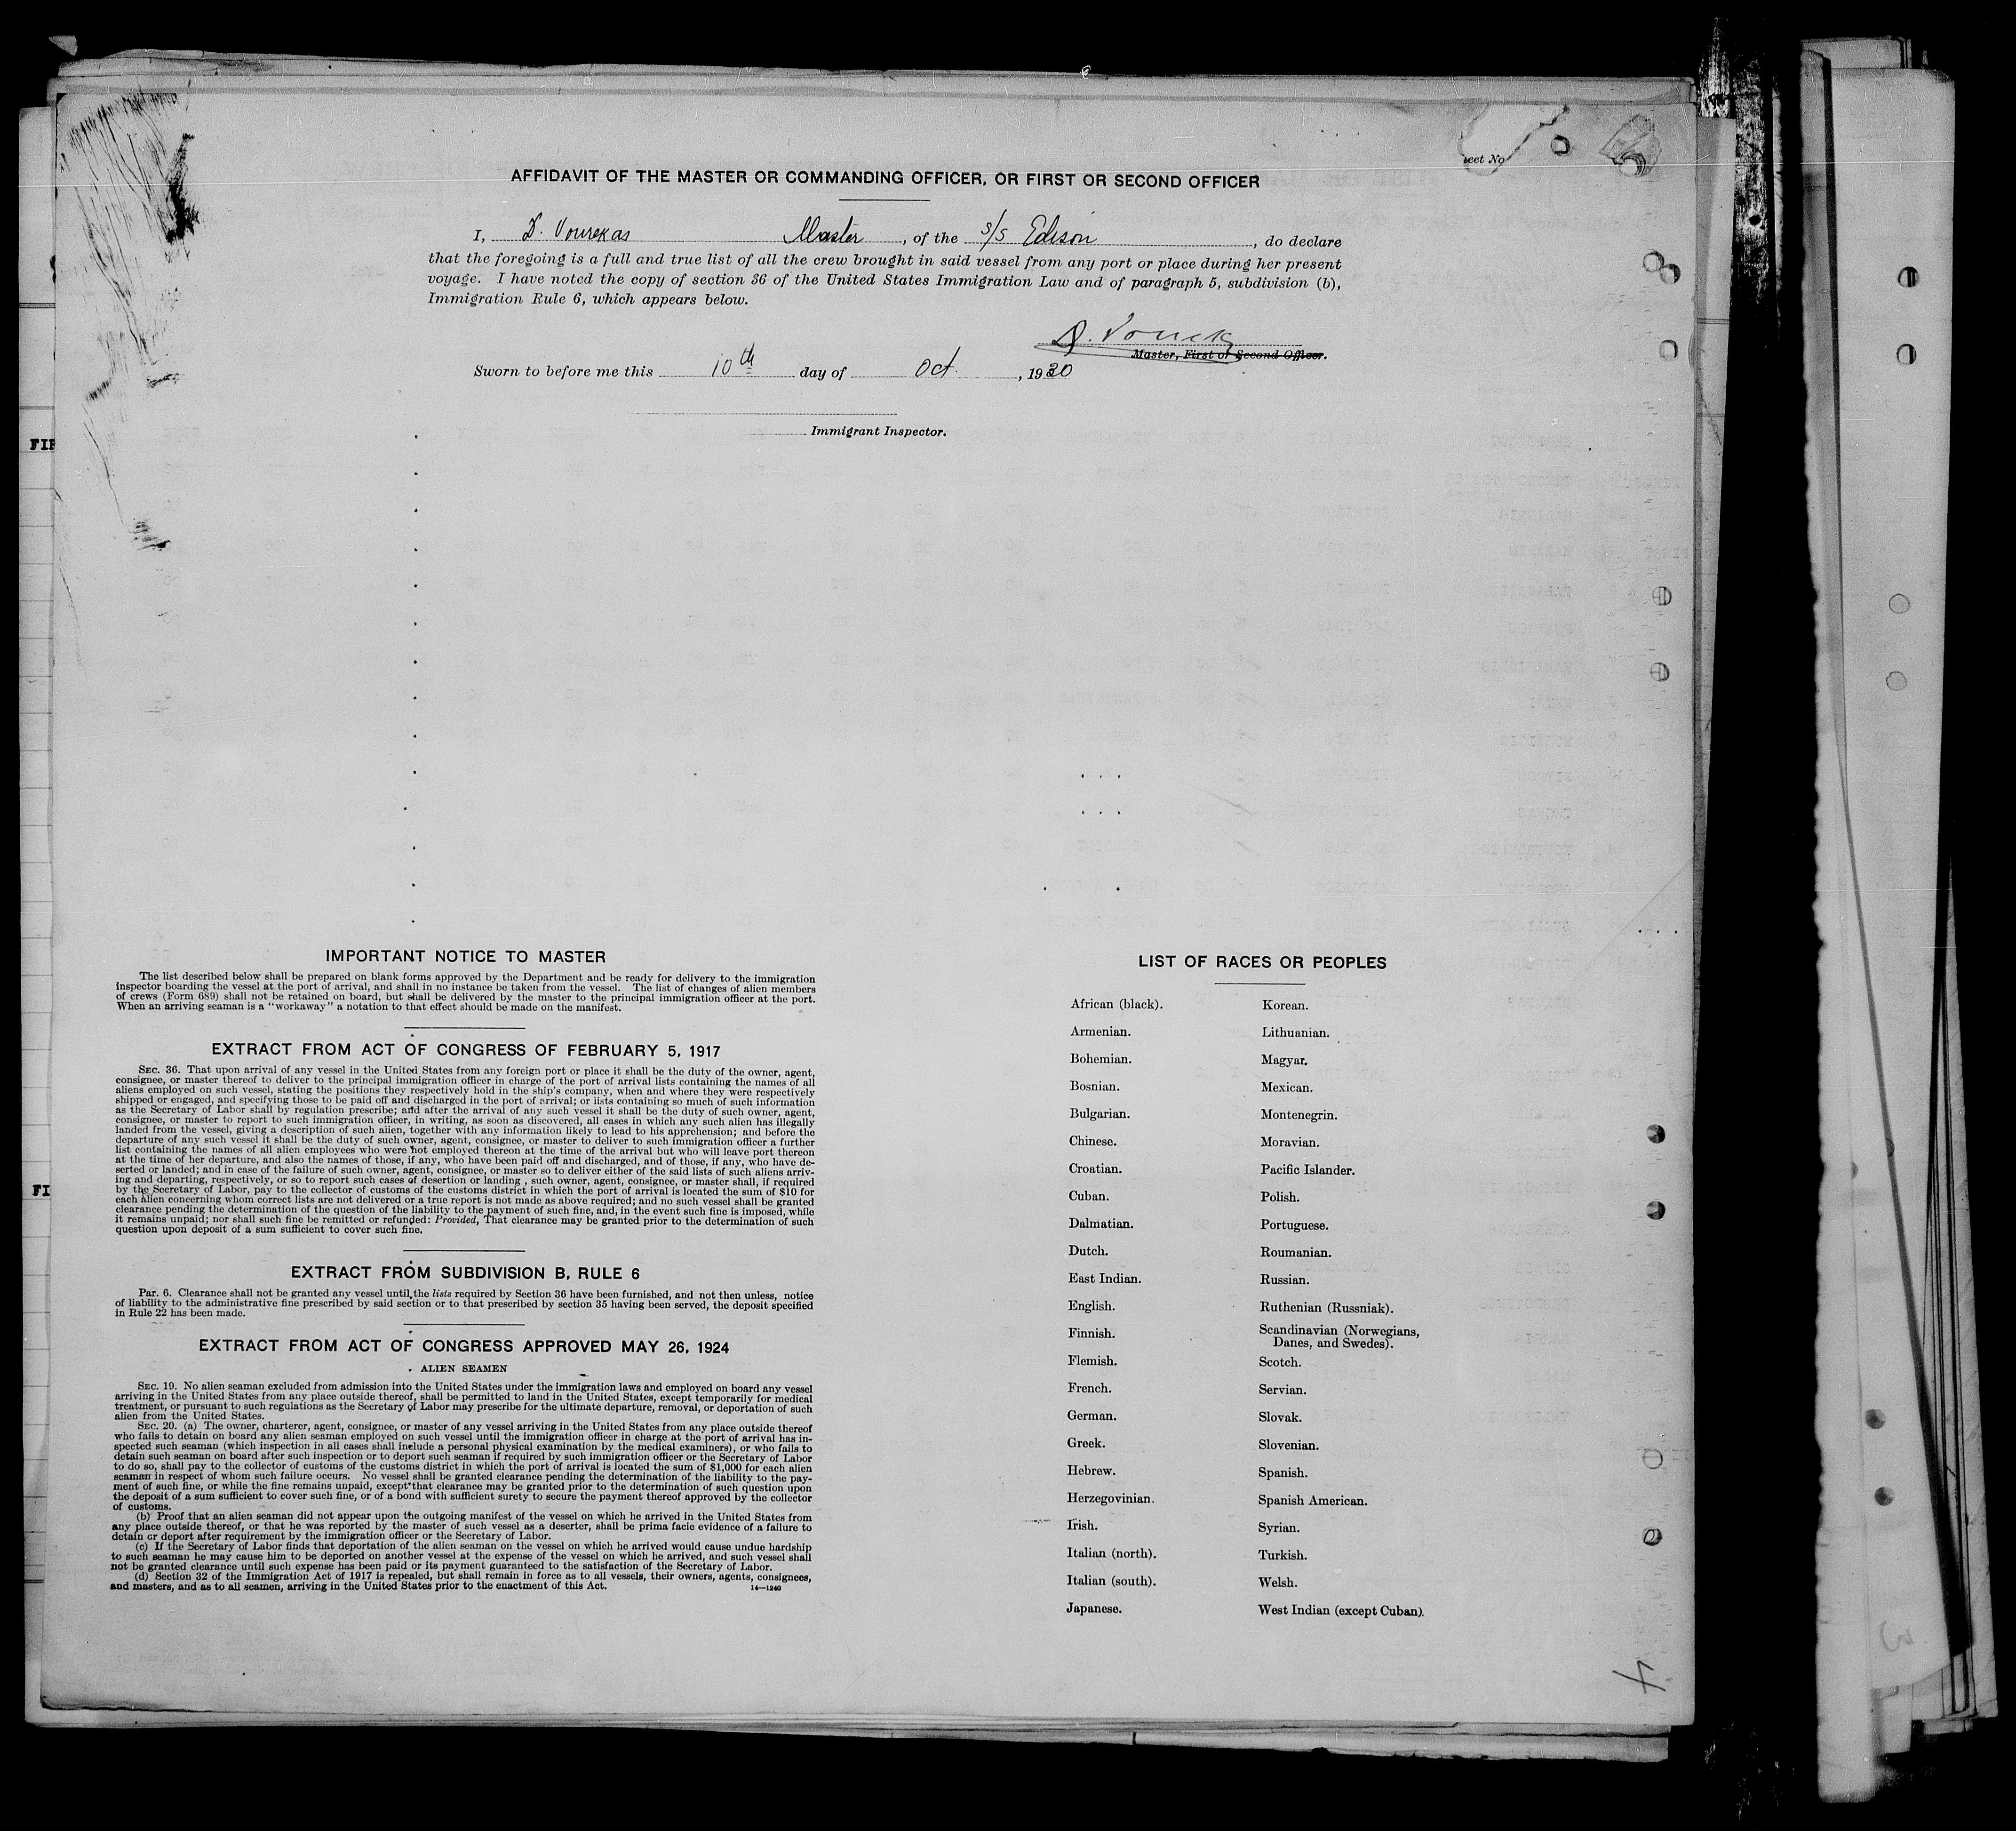 eet No
AFFIDAVIT OF THE MASTER OR COMMANDING OFFICER, OR FIRST OR SECOND OFFICER
I, D. Vourekas Master, of the S/S Edison, do declare
that the foregoing is a full and true list of all the crew brought in said vessel from any port or place during her present
voyage. I have noted the copy of section 36 of the United States Immigration Law and of paragraph 5, subdivision (b),
Immigration Rule 6, which appears below.
Master, First or Second Officer.
Sworn to before me this 10th day of Oct., 1930
Immigrant Inspector.
FIR
FI
IMPORTANT NOTICE TO MASTER
The list described below shall be prepared on blank forms approved by the Department and be ready for delivery to the immigration
inspector boarding the vessel at the port of arrival, and shall in no instance be taken from the vessel. The list of changes of alien members
of crews (Form 689) shall not be retained on board, but shall be delivered by the master to the principal immigration officer at the port.
When an arriving seaman is a "workaway" a notation to that effect should be made on the manifest.
EXTRACT FROM ACT OF CONGRESS OF FEBRUARY 5, 1917
SEC. 36. That upon arrival of any vessel in the United States from any foreign port or place it shall be the duty of the owner, agent,
consignee, or master thereof to deliver to the principal immigration officer in charge of the port of arrival lists containing the names of all
aliens employed on such vessel, stating the positions they respectively hold in the ship's company, when and where they were respectively
shipped or engaged, and specifying those to be paid off and discharged in the port of arrival; or lists containing so much of such information
as the Secretary of Labor shall by regulation prescribe; and after the arrival of any such vessel it shall be the duty of such owner, agent,
consignee, or master to report to such immigration officer, in writing, as soon as discovered, all cases in which any such alien has illegally
landed from the vessel, giving a description of such alien, together with any information likely to lead to his apprehension; and before the
departure of any such vessel it shall be the duty of such owner, agent, consignee, or master to deliver to such immigration officer a further
list containing the names of all alien employees who were not employed thereon at the time of the arrival but who will leave port thereon
at the time of her departure, and also the names of those, if any, who have been paid off and discharged, and of those, if any, who have de-
serted or landed; and in case of the failure of such owner, agent, consignee, or master so to deliver either of the said lists of such aliens arriv-
ing and departing, respectively, or so to report such cases of desertion or landing , such owner, agent, consignee, or master shall, if required
by the Secretary of Labor, pay to the collector of customs of the customs district in which the port of arrival is located the sum of $10 for
each alien concerning whom correct lists are not delivered or a true report is not made as above required; and no such vessel shall be granted
clearance pending the determination of the question of the liability to the payment of such fine, and, in the event such fine is imposed, while
it remains unpaid; nor shall such fine be remitted or refunded: Provided, That clearance may be granted prior to the determination of such
question upon deposit of a sum sufficient to cover such fine.
EXTRACT FROM SUBDIVISION B, RULE 6
Par. 6. Clearance shall not be granted any vessel until the lists required by Section 36 have been furnished, and not then unless, notice
of liability to the administrative fine prescribed by said section or to that prescribed by section 35 having been served, the deposit specified
in Rule 22 has been made.
EXTRACT FROM ACT OF CONGRESS APPROVED MAY 26, 1924
ALIEN SEAMEN
SEC. 19. No alien seaman excluded from admission into the United States under the immigration laws and employed on board any vessel
arriving in the United States from any place outside thereof, shall be permitted to land in the United States, except temporarily for medical
treatment, or pursuant to such regulations as the Secretary of Labor may prescribe for the ultimate departure, removal, or deportation of such
alien from the United States.
SEC. 20. (a) The owner, charterer, agent, consignee, or master of any vessel arriving in the United States from any place outside thereof
who fails to detain on board any alien seaman employed on such vessel until the immigration officer in charge at the port of arrival has in-
spected such seaman (which inspection in all cases shall include a personal physical examination by the medical examiners), or who fails to
detain such seaman on board after such inspection or to deport such seaman if required by such immigration officer or the Secretary of Labor
to do so, shall pay to the collector of customs of the customs district in which the port of arrival is located the sum of $1,000 for each alien
seaman in respect of whom such failure occurs. No vessel shall be granted clearance pending the determination of the liability to the pay-
ment of such fine, or while the fine remains unpaid, except that clearance may be granted prior to the determination of such question upon
the deposit of a sum sufficient to cover such fine, or of a bond with sufficient surety to secure the payment thereof approved by the collector
of customs.
(b) Proof that an alien seaman did not appear upon the outgoing manifest of the vessel on which he arrived in the United States from
any place outside thereof, or that he was reported by the master of such vessel as a deserter, shall be prima facie evidence of a failure to
detain or deport after requirement by the immigration officer or the Secretary of Labor.
(c) If the Secretary of Labor finds that deportation of the alien seaman on the vessel on which he arrived would cause undue hardship
to such seaman he may cause him to be deported on another vessel at the expense of the vessel on which he arrived, and such vessel shall
not be granted clearance until such expense has been paid or its payment guaranteed to the satisfaction of the Secretary of Labor.
(d) Section 32 of the Immigration Act of 1917 is repealed, but shall remain in force as to all vessels, their owners, agents, consignees,
and masters, and as to all seamen, arriving in the United States prior to the enactment of this Act.
14—1240
LIST OF RACES OR PEOPLES
African (black).
Armenian.
Bohemian.
Bosnian.
Bulgarian.
Chinese.
Croatian.
Cuban.
Dalmatian.
Dutch.
East Indian.
English.
Finnish.
Flemish.
French.
German.
Greek.
Hebrew.
Herzegovinian.
Irish.
Italian (north).
Italian (south).
Japanese.
Korean.
Lithuanian.
Magyar.
Mexican.
Montenegrin.
Moravian.
Pacific Islander.
Polish.
Portuguese.
Roumanian.
Russian.
Ruthenian (Russniak).
Scandinavian (Norwegians,
Danes, and Swedes).
Scotch.
Servian.
Slovak.
Slovenian.
Spanish.
Spanish American.
Syrian.
Turkish.
Welsh.
West Indian (except Cuban).
4
3